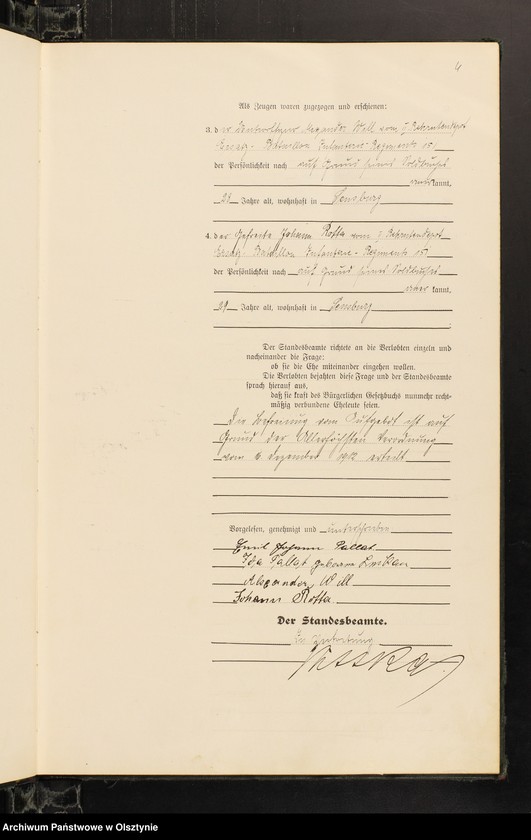 4
Als Zeugen waren zugezogen und erschienen:
3. der Alexander Will vom
Ersatz-Bataillon Infanterie-Regiments 151
der Persönlichkeit nach auf Grund seines Soldbuches
anerkannt,
Jahre alt, wohnhaft in Sensburg
4. der Gefreite Johann Rotta vom
Ersatz Bataillon Infanterie-Regiments 151
der Persönlichkeit nach auf Grund seines Soldbuches
anerkannt,
29 Jahre alt, wohnhaft in Sensburg
Der Standesbeamte richtete an die Verlobten einzeln und
nacheinander die Frage:
ob sie die Ehe miteinander eingehen wollen.
Die Verlobten bejahten diese Frage und der Standesbeamte
sprach hierauf aus,
daß sie kraft des Bürgerlichen Gesetzbuchs nunmehr recht-
mäßig verbundene Eheleute seien.
Die Befreiung vom Aufgebot ist auf
Grund der Allerhöchsten Verordnung
vom 6. Dezember 1912 erteilt
Vorgelesen, genehmigt und unterschrieben
Emil Johann Pallat
Ida Pallat geborene
Alexander Will
Johann Rotta
Der Standesbeamte.
In Vertretung
Archiwum Państwowe w Olsztynie